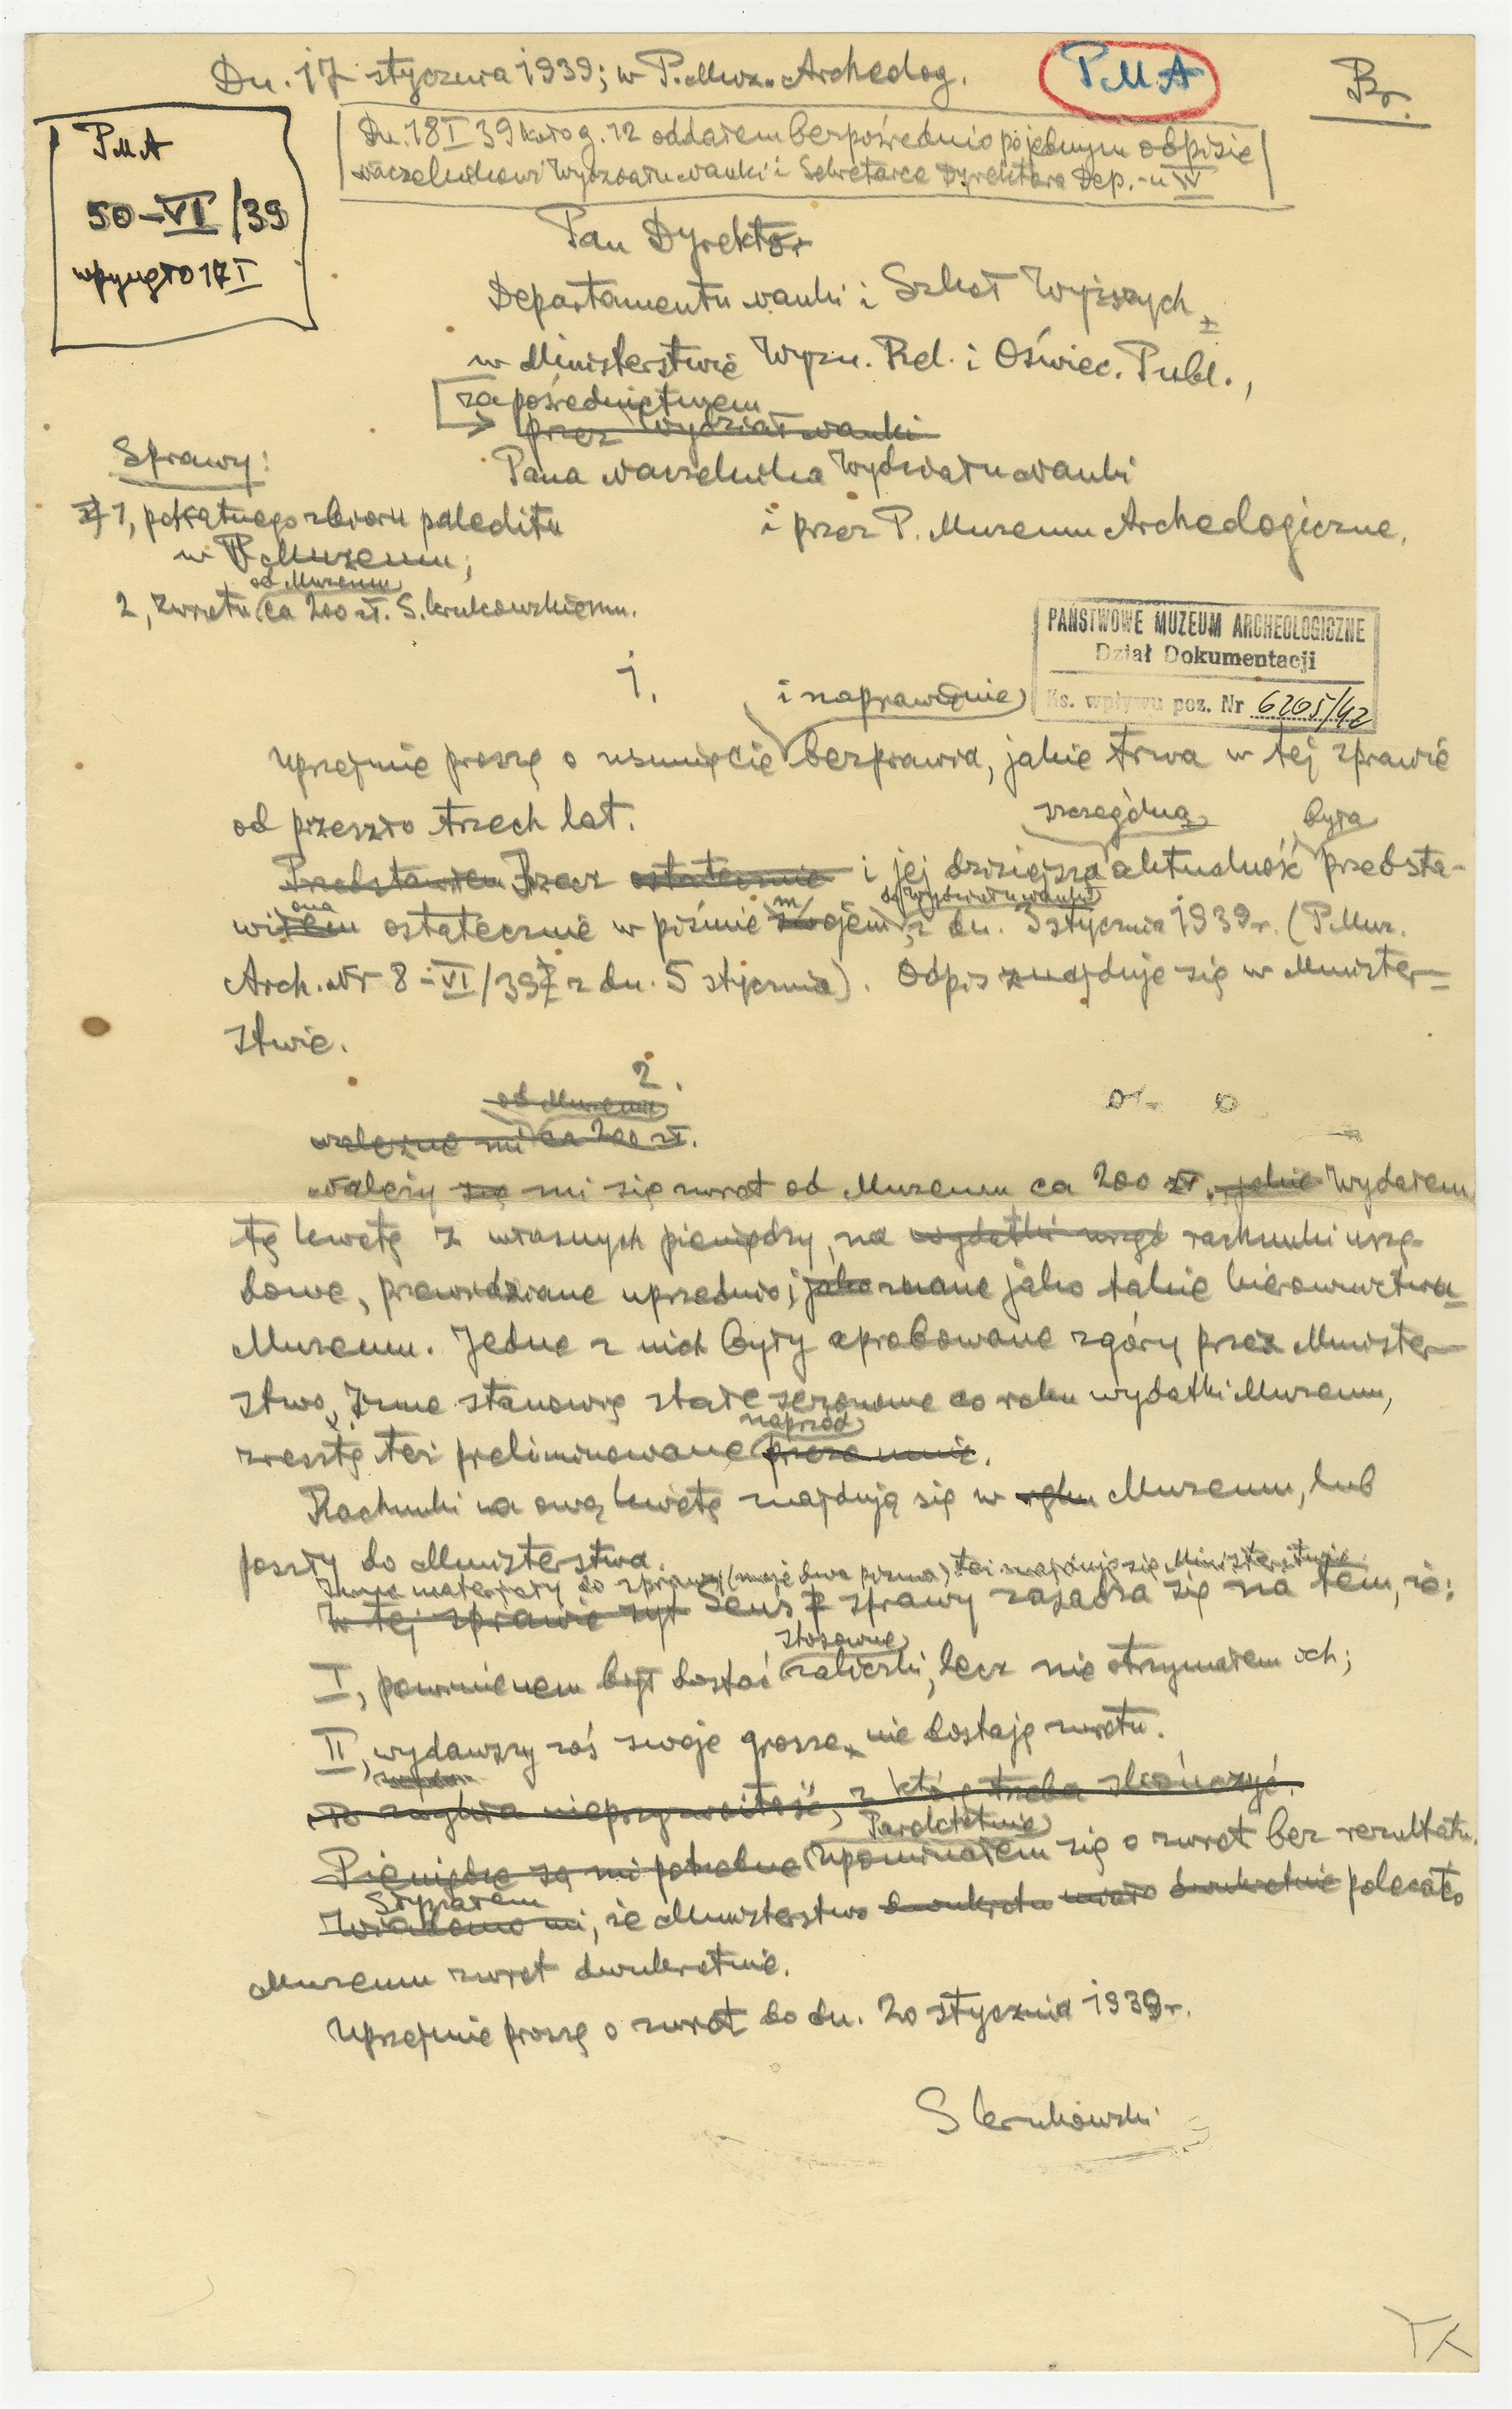 Dn. 17 stycznia 1939; w P. Muz. Archeolog.
PMA
Br.
PMA
50-VI/39
wpłynęło 17 I
Dn. 18 I 39 koło g. 12 oddałem bezpośrednio po jednym odpisie
Naczelnikowi Wydziału Nauki i Sekretarce Dyrektora Dep.-u IV
Pan Dyrektor
Departamentu Nauki i Szkół Wyższych
w Ministerstwie Wyzn. Rel. i Oświec. Publ.,
za pośrednictwem
przez Wydział Nauki
Pana Naczelnika Wydziału Nauki
i przez P. Muzeum Archeologiczne.
Sprawy:
1, pokątnego zbioru paleolitu
w P. Muzeum;
od Muzeum
2, zwrotu ca 200 zł. S. Krukowskiemu.
PAŃSTWOWE MUZEUM ARCHEOLOGICZNE
Dział Dokumentacji
Ks. wpływu poz. Nr 6205/42
1.
i naprawienie
Uprzejmie proszę o usunięcie bezprawia, jakie trwa w tej sprawie
od przeszło trzech lat.
szczególną była
Przedstawiłem Rzecz ostatecznie i jej dzisiejszą aktualność przedsta-
ona m do Wydziału Nauki
wiłem ostatecznie w piśmie swojem, z dn. 3 stycznia 1939 r. (P. Muz.
Arch. Nr 8-VI/39 z dn. 5 stycznia). Odpis znajduje się w Minister-
stwie.
2.
od Muzeum
należne mi ca 200 zł.
Należy się mi się zwrot od Muzeum ca 200 zł. jakie Wydałem
tę kwotę z własnych pieniędzy, na wydatki urzęd rachunki urzę-
dowe, przewidziane uprzednio i jako znane jako takie kierownictwu
Muzeum. Jedne z nich były aprobowane zgóry przez Minister-
stwo. Inne stanowią stałe sezonowe co roku wydatki Muzeum,
naprzód
zresztą też preliminowane przeze mnie.
Rachunki na ową kwotę znajdują się w Muzeum, lub
poszły do Ministerstwa.
Inne materjały do sprawy (moje dwa pisma) też znajdują się Ministerstwie.
W tej sprawie Sens sprawy zasadza się na tem, że:
stosowne
I, powinienem był dostać zaliczki, lecz nie otrzymałem ich;
II, wydawszy zaś swoje grosze, nie dostaję zwrotu.
to zwykła nieprzyzwoitość, z którą trzeba skończyć.
Parokrotnie
Pieniądze są mi potrzebne Upominałem się o zwrot bez rezultatu.
Słyszałem
Wiadomo mi, że Ministerstwo dwukrotnie miało dwukrotnie polecało
Muzeum zwrot dwukrotnie.
Uprzejmie proszę o zwrot do dn. 20 stycznia 1939 r.
S Krukowski